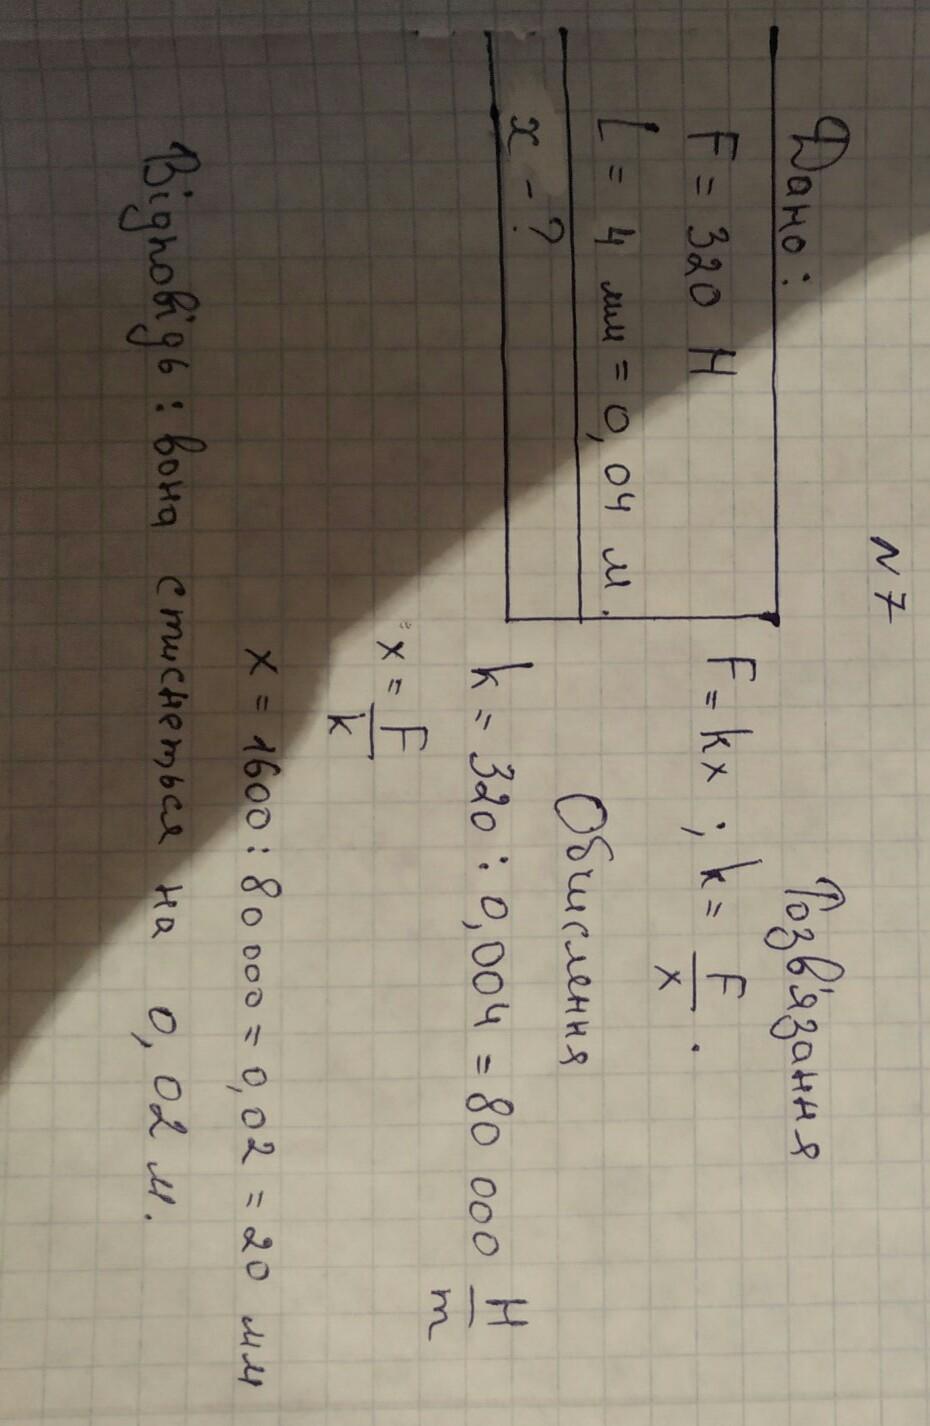 N 7
Дано:
F = 320 Н
L = 4 мм = 0,04 м.
x - ?
Розв'язання
F = kx ; k = F/x .
Обчислення
k = 320 : 0,004 = 80 000 Н/m
x = F/k
x = 1600 : 80 000 = 0,02 = 20 мм
Відповідь: вона стиснеться на 0,02 м.